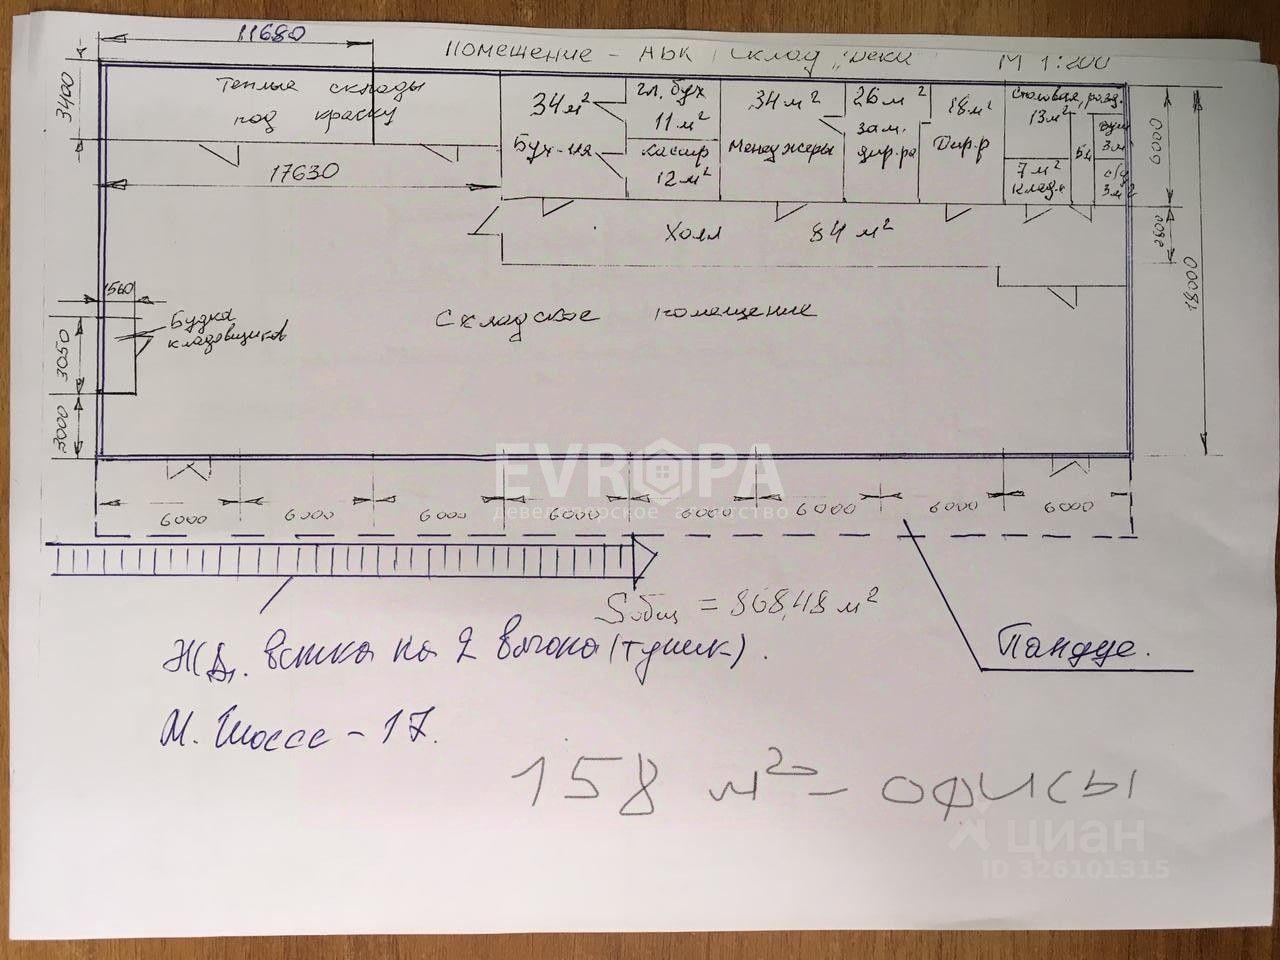 11680
Помещение - НБК
М 1:200
3400
Теплые склады
под краску
34м²
Бух-ия
гл. бух
11 м²
кассир
12 м²
34 м²
Менеджеры
26 м²
зам.
дир.ра
18 м²
Дир.р
Столовая, разд.
13м²
7 м²
клад.
3м
с/у
3м²
6000
17630
Холл 84 м²
2600
18000
1560
Будка
кладовщиков
Складское помещение
3050
3000
EVROPA
девелоперское агентство
6000 6000 6000 6000 6000 6000 6000 6000
Sобщ = 868,48 м²
ЖД. ветка на 2 вагона (тупик).
Пандус.
М. Шоссе - 17.
158 м² - офисы
циан
ID 326101315